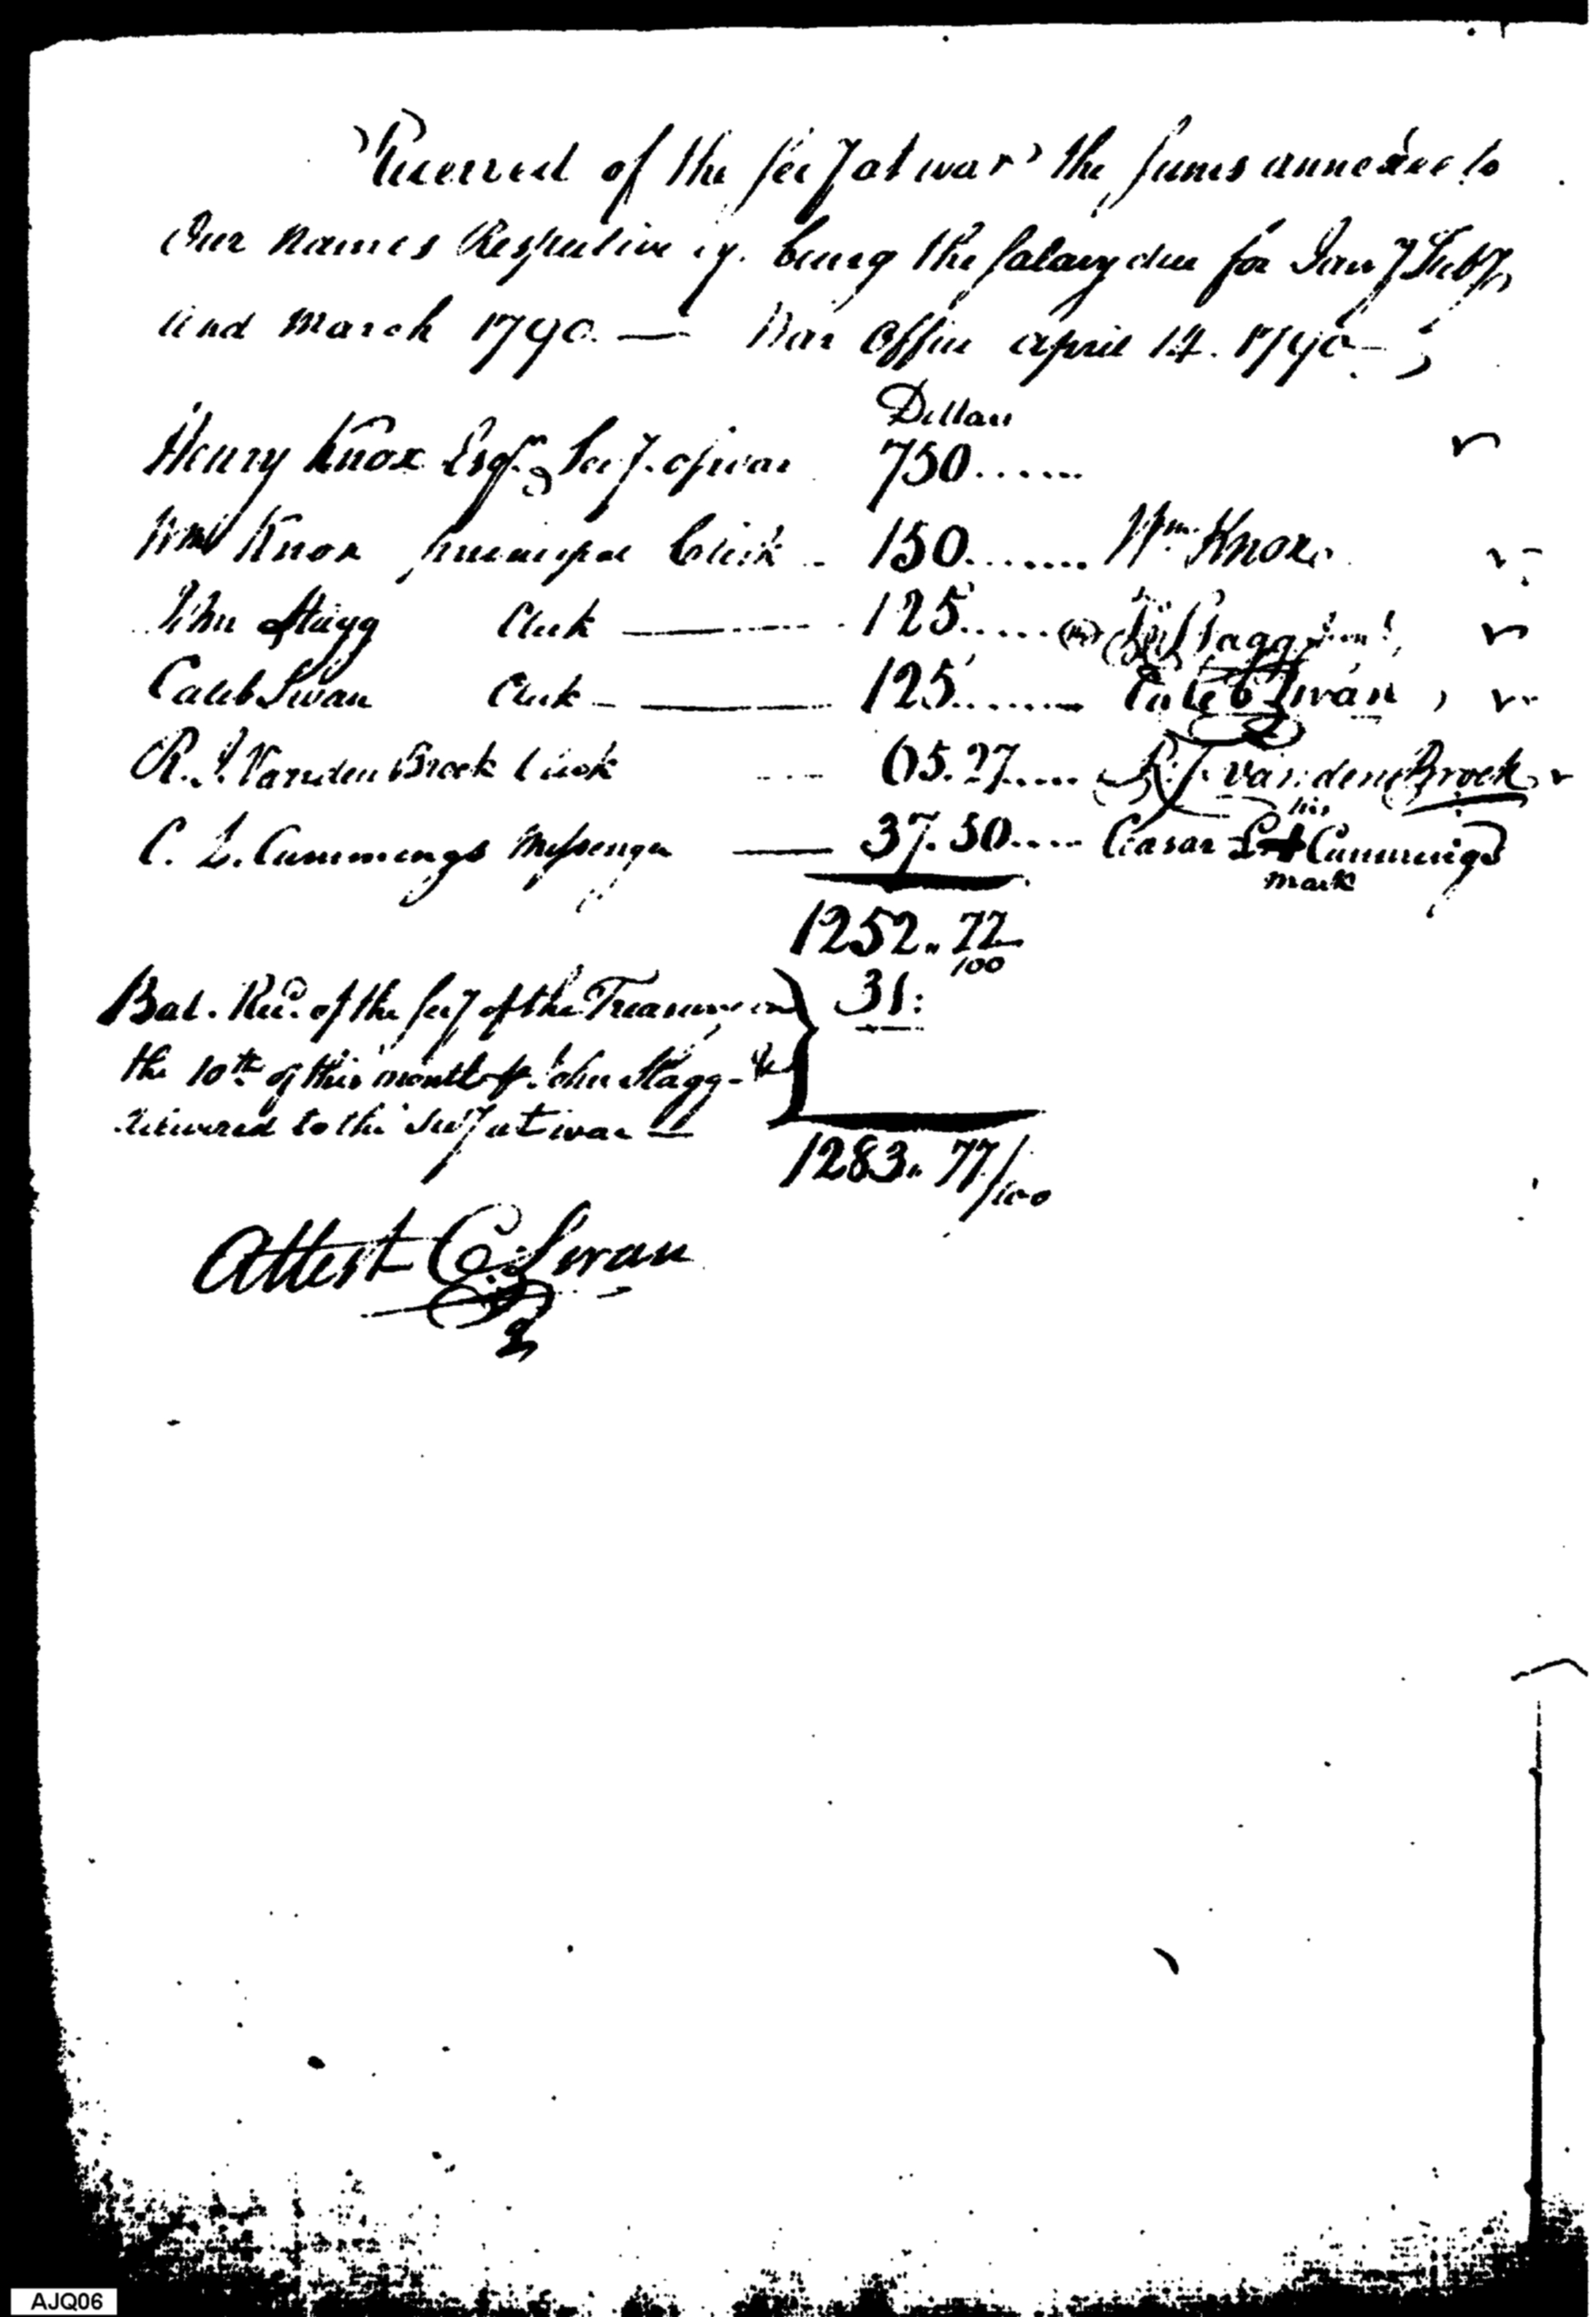 Received of the Secy at war the sums annexed to
Our Names Respectively. being the Salary due for Jany Feby
and March 1790. — War Office april 14. 1790 —
Dollars
Henry Knox Esqr. Secy. of war 750......
Wm Knox principal Clerk .. 150........ Wm. Knox
John Stagg Clerk ——— 125...... Stagg
Caleb Swan Clerk ——— 125........ Caleb Swan
R. J. Vanden Broek Clerk .... 65.27..... R. J. van den Broek
his
C. L. Cummings Messenger —— 37.50.... Ceasar L + Cummings
mark
1252.. 77/100
Bal. Recd. of the Secy of the Treasury on } 31:
the 10th of this month John Stagg - &
delivered to the Secy at war —
1283.. 77/100
Attest C. Swan
AJQ06